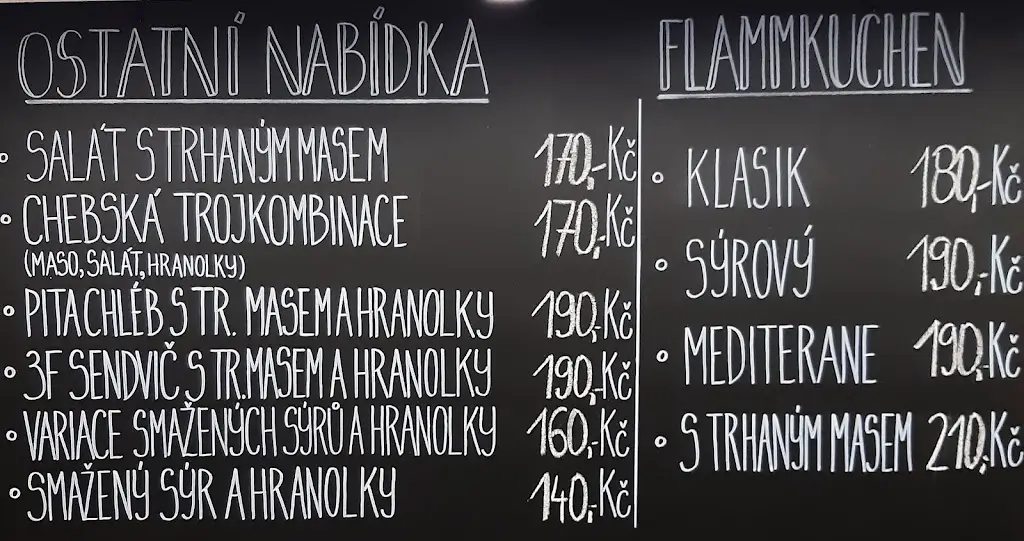 OSTATNÍ NABÍDKA
SALÁT S TRHANÝM MASEM 170,-Kč
CHEBSKÁ TROJKOMBINACE 170,-Kč
(MASO, SALÁT, HRANOLKY)
PITA CHLÉB S TR. MASEM A HRANOLKY 190,-Kč
3F SENDVIČ S TR. MASEM A HRANOLKY 190,-Kč
VARIACE SMAŽENÝCH SÝRŮ A HRANOLKY 160,-Kč
SMAŽENÝ SÝR A HRANOLKY 140,-Kč
FLAMMKUCHEN
KLASIK 180,-Kč
SÝROVÝ 190,-Kč
MEDITERANE 190,-Kč
S TRHANÝM MASEM 210,-Kč